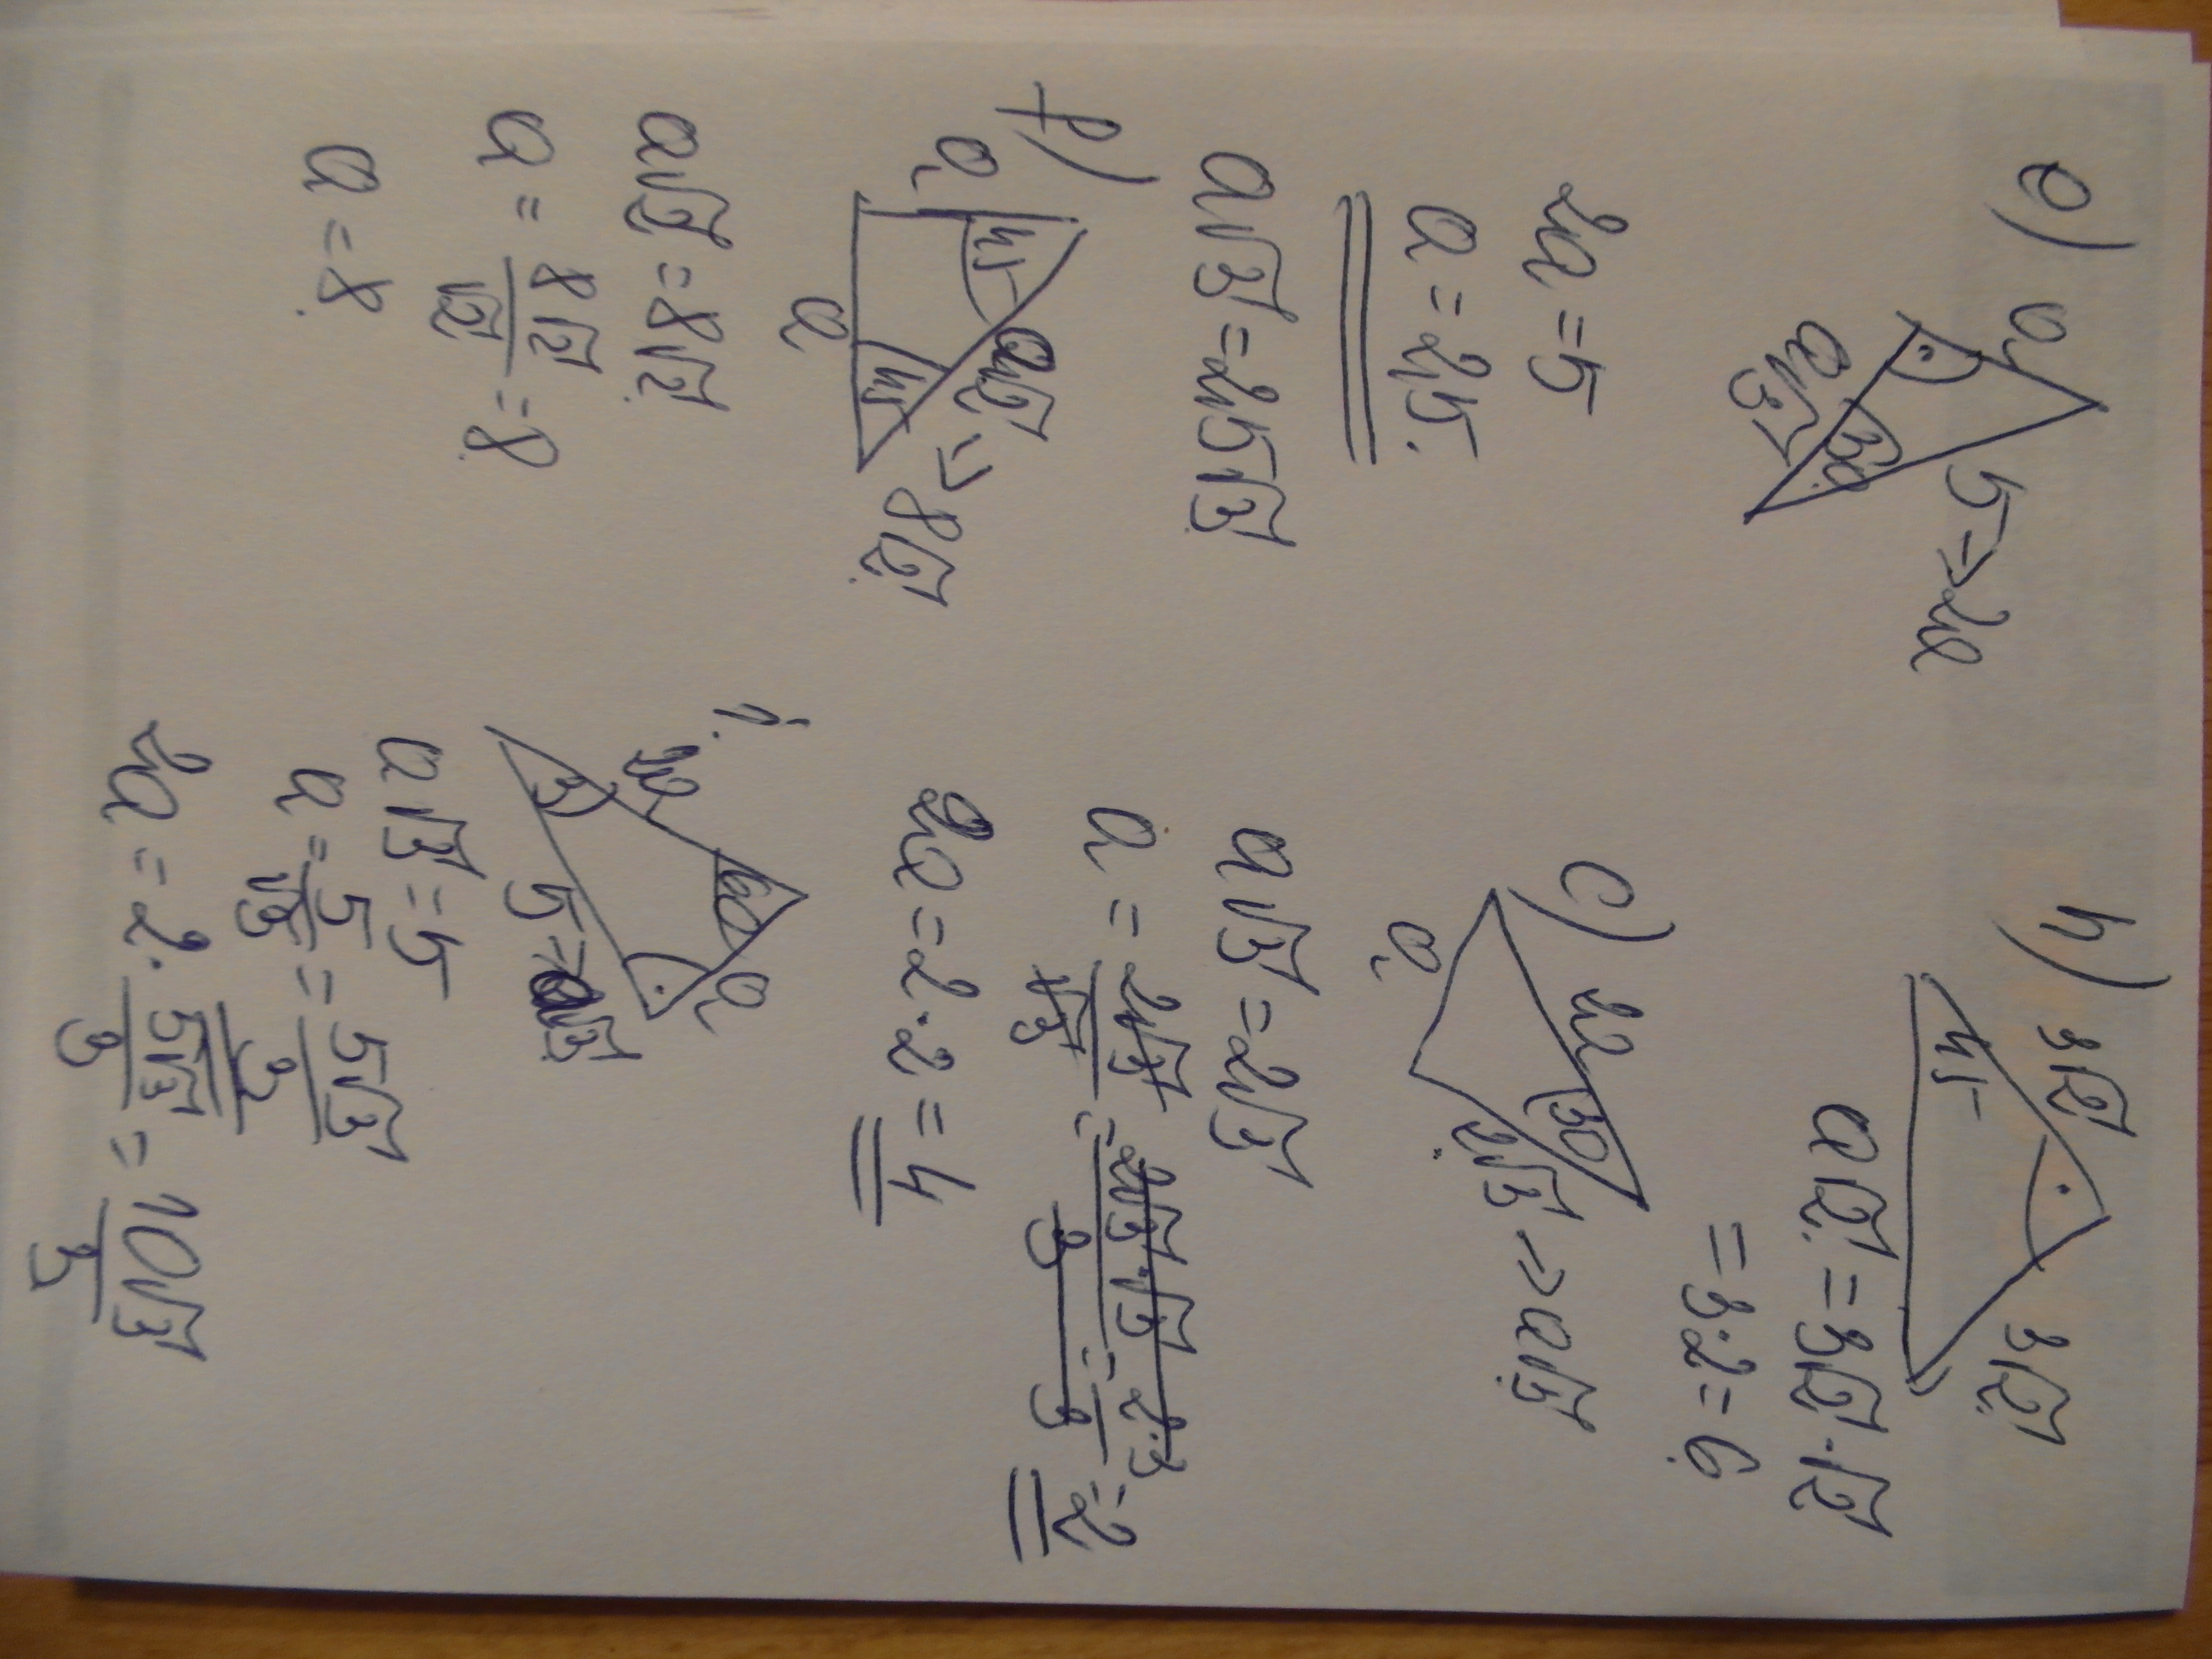 e)
a
5 → 2a
a√3
30
2a = 5
a = 2,5.
a√3 = 2,5√3
f)
a
45
a√2 => 8√2
45
a
a√2 = 8√2
a = 8√2/√2 = 8
a = 8
h)
3√2
3√2
45
a√2 = 3√2 · √2
= 3·2 = 6
c)
2a
30
a
2√3 => a√3
a√3 = 2√3
a = 2√3/√3 = 2√3·√3/3 = 2·3/3 = 2
2a = 2·2 = 4
i.
2a
60
a
5 => a√3
a√3 = 5
a = 5/√3 = 5√3/3
2a = 2 · 5√3/3 = 10√3/3